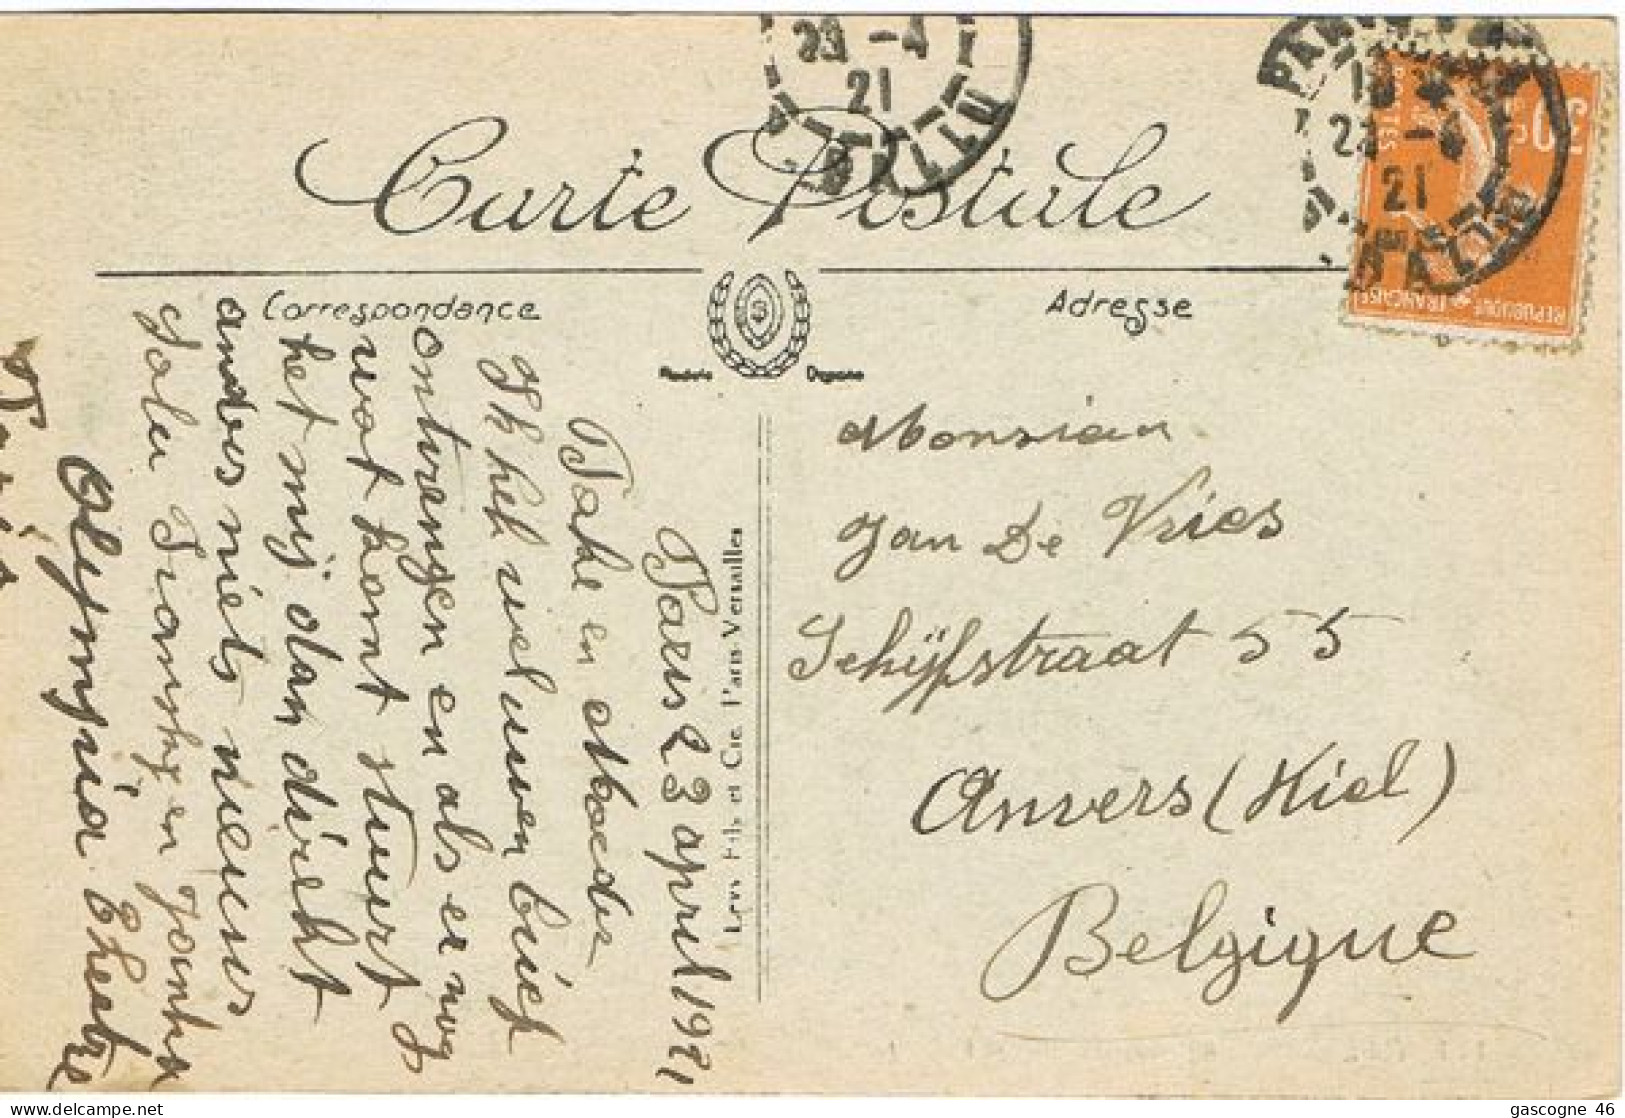 Carte Postale
Correspondance
Adresse
Paris 23 april 1921
Pake en Moeder
Ik heb uwel uwen brief
ontvangen en als er nog
wat komt stuurt
het mij dan direkt
anders niets nieuws
en
Olympia Theatre
Paris
Monsian
Jan De Vries
Schijfstraat 55
Anvers (Kiel)
Belgique
Levy Fils et Cie. Paris Versailles
23 -4
21
D'ALLERAY
PARIS
23 -4
21
REPUBLIQUE FRANÇAISE
POSTES
30c
gascogne 46